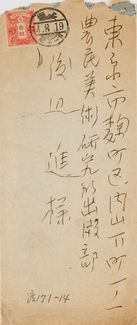 東京市麹町区内山下町一ノ一
農民美術研究所出版部
渡辺進様
3.8.19
濱171-14